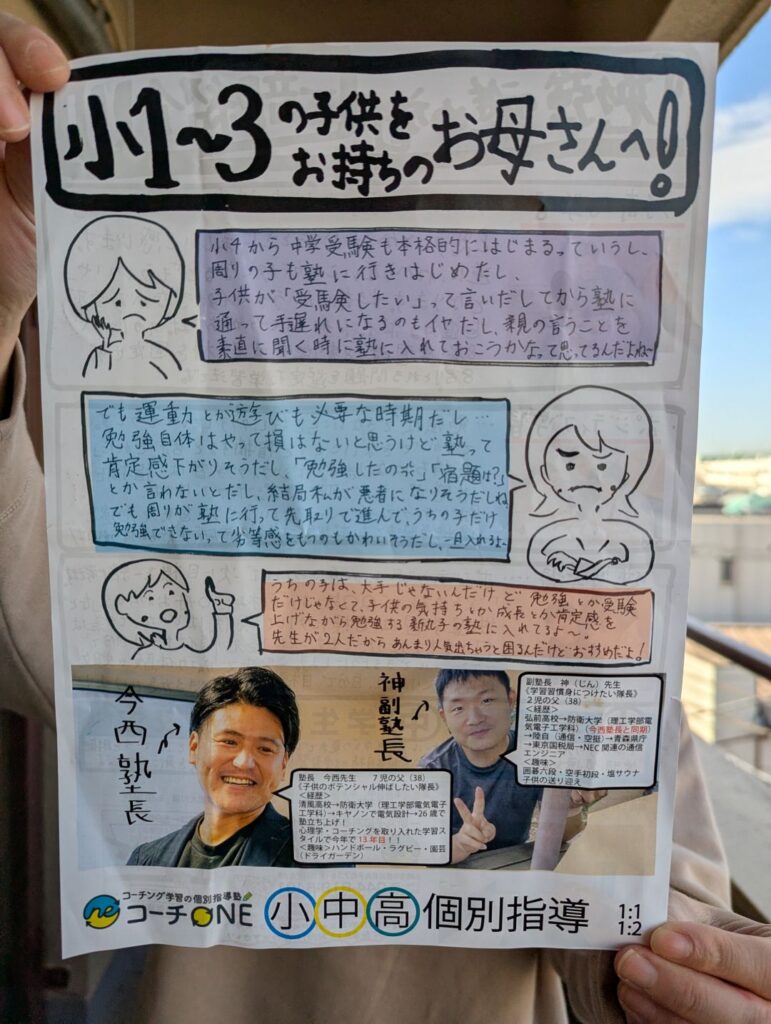 小1~3の子供をお持ちのお母さんへ!
小4から中学受験も本格的にはじまるっていうし、
周りの子も塾に行きはじめたし、
子供が「受験したい」って言いだしてから塾に
通って手遅れになるのもイヤだし、親の言うことを
素直に聞く時に塾に入れておこうかなって思ってるんだよね~
でも運動とか遊びも必要な時期だし…
勉強自体はやって損はないと思うけど塾って
肯定感下がりそうだし、「勉強したの?」「宿題は?」
とか言わないとだし、結局私が悪者になりそうだしね
でも周りが塾に行って先取りで進んで、うちの子だけ
勉強できないって劣等感をもつのもかわいそうだし、一旦入れるよ~
うちの子は、大手じゃないんだけど勉強とか受験
だけじゃなくて、子供の気持ちとか成長とか肯定感を
上げながら勉強する新丸子の塾に入れてるよ~。
先生が2人だからあんまり人気出ちゃうと困るんだけどおすすめだよ!
今西塾長
神副塾長
副塾長 神(じん)先生
《学習習慣身につけたい隊長》
2児の父(38)
<経歴>
弘前高校→防衛大学(理工学部電
気電子工学科)(今西塾長と同期)
→陸自(通信・空挺)→青森県庁
→東京国税局→NEC関連の通信
エンジニア
<趣味>
囲碁六段・空手初段・塩サウナ
子供の送り迎え
塾長 今西先生 7児の父(38)
《子供のポテンシャル伸ばしたい隊長》
<経歴>
清風高校→防衛大学(理工学部電気電子
工学科)→キヤノンで電気設計→26歳で
塾立ち上げ!
心理学・コーチングを取り入れた学習ス
タイルで今年で13年目!!
<趣味>ハンドボール・ラグビー・園芸
(ドライガーデン)
コーチング学習の個別指導塾
ne コーチONE
小中高個別指導
1:1
1:2